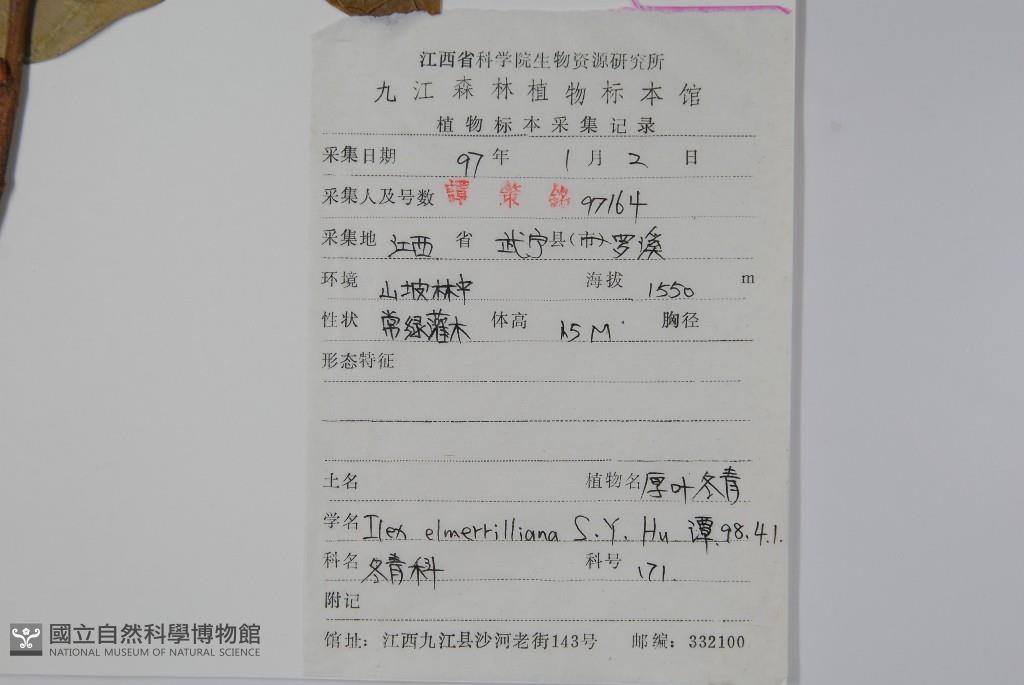 江西省科学院生物资源研究所
九江森林植物标本馆
植物标本采集记录
采集日期 97年 1月 2日
采集人及号数 譚策銘 97164
采集地 江西省 武宁县(市) 罗溪
环境 山坡林中 海拔 1550 m
性状 常绿灌木 体高 1.5M 胸径
形态特征
土名 植物名 厚叶冬青
学名 Ilex elmerrilliana S.Y. Hu 谭.98.4.1.
科名 冬青科 科号 171.
附记
馆址：江西九江县沙河老街143号 邮编：332100
國立自然科學博物館
NATIONAL MUSEUM OF NATURAL SCIENCE